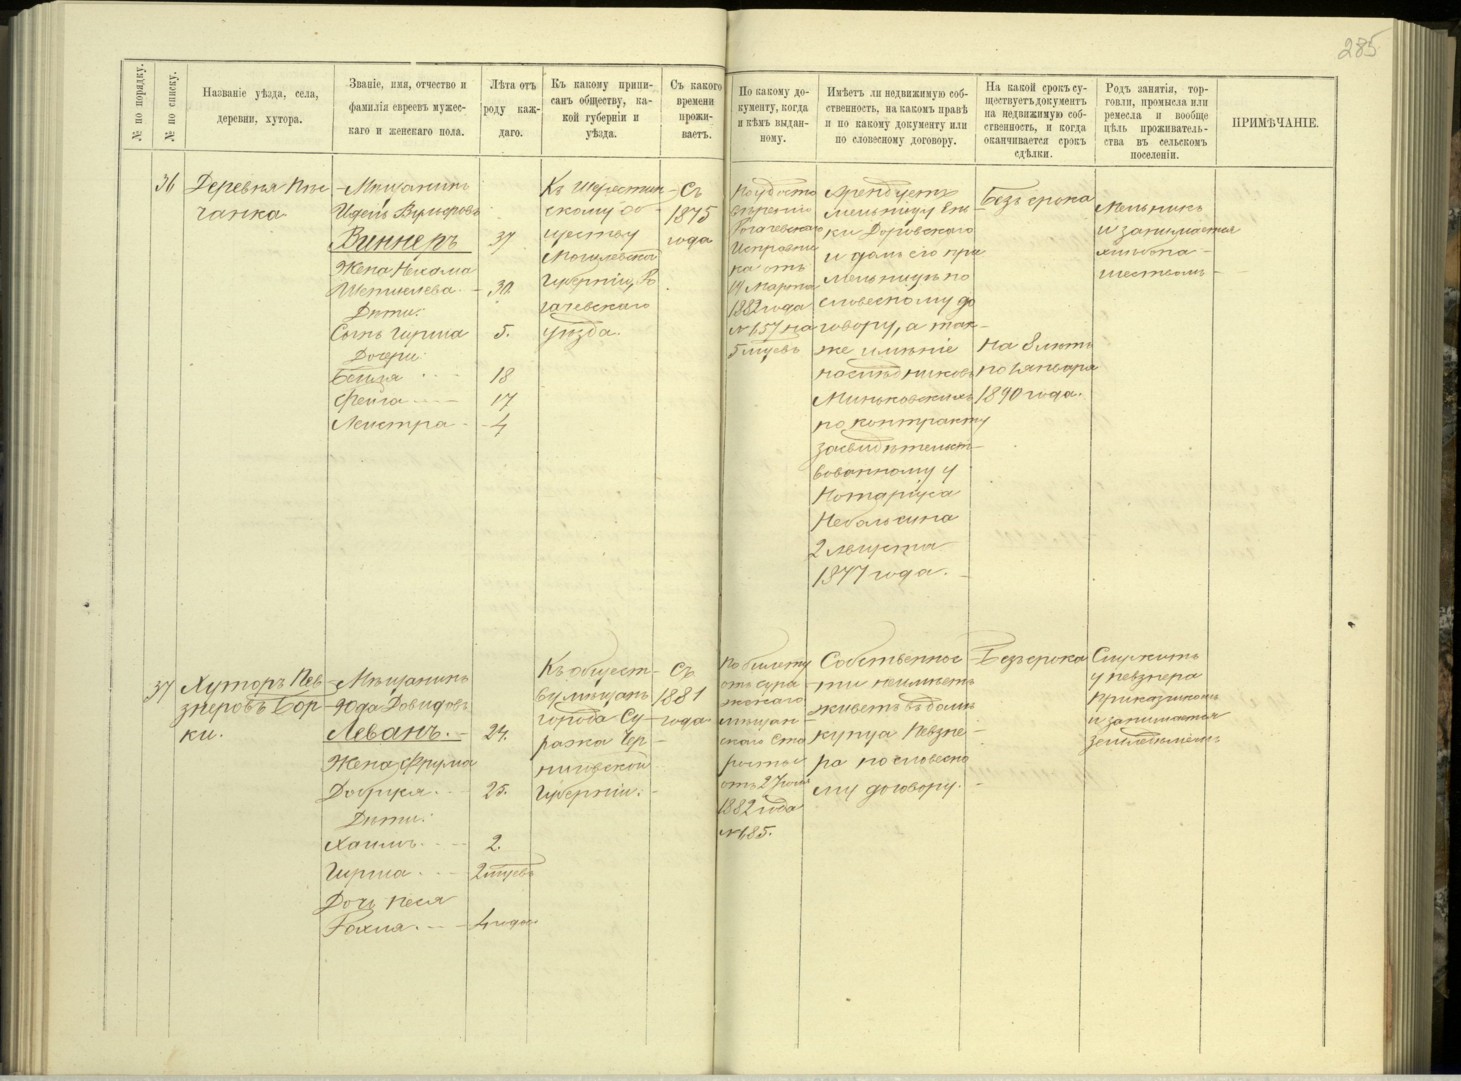 285
№ по порядку.
№ по списку.
Названіе уѣзда, села,
деревни, хутора.
Званіе, имя, отчество и
фамилія евреевъ мужес-
каго и женскаго пола.
Лѣта отъ
роду каж-
даго.
Къ какому припи-
санъ обществу, ка-
кой губерніи и
уѣзда.
Съ какого
времени
прожи-
ваетъ.
По какому до-
кументу, когда
и кѣмъ выдан-
ному.
Имѣетъ ли недвижимую соб-
ственность, на какомъ правѣ
и по какому документу или
по словесному договору.
На какой срокъ су-
ществуетъ документъ
на недвижимую соб-
ственность, и когда
оканчивается срокъ
сдѣлки.
Родъ занятія, тор-
говли, промысла или
ремесла и вообще
цѣль проживатель-
ства въ сельскомъ
поселеніи.
ПРИМѢЧАНІЕ.
36
Деревня Пѣс-
чанка
Мѣщанинъ
Виннеръ
37
Жена Нехама
30
Дѣти:
Сынъ Гирша
5.
Дочери:
Бейля
18
Фейга
17
4
Къ
скому об-
ществу
Могилевской
губерніи, Ро
гачевскаго
уѣзда.
Съ
1875
года
По удосто
вѣренію
Рогачевскаго
Исправни
ка отъ
14 Марта
1882 года
№ 157 на
5 мѣсяцевъ
Арендуетъ
мельницу
ки
и домъ его при
мельницѣ по
словесному до
говору, а так-
же имѣніе
наслѣдниковъ
Миньковскихъ
по контракту
засвидѣтельст-
вованному у
Нотаріуса
Небольсина
2 Августа
1877 года.
Безъ срока
На 8 лѣтъ
по 1 января
1890 года.
Мельникъ
и занимается
хлѣбопа-
шествомъ
37
Хуторъ Пев
знеровъ Бор
ки.
Мѣщанинъ
Юда Давидовъ
Леванъ.
24.
Жена Фрума
25.
Дѣти:
Хаимъ
2.
Гирша
2 мѣсяца
Дочь Песя
Рохля
4 года.
Къ общест-
ву мѣщанъ
города Су-
ража Чер-
ниговской
губерніи.
Съ
1881
года
По билету
отъ Сура
жскаго
мѣщан-
скаго Ста
росты
отъ 27
1882 года
№ 685.
Собственнос
ти не имѣетъ
живетъ въ домѣ
купца Певзне-
ра по словесно
му договору.
Безъ срока
Служитъ
у Певзнера
прикащикомъ
и занимается
земледѣліемъ